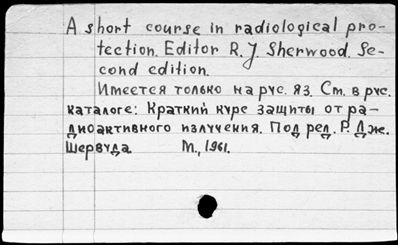 A short course in radiological pro-
tection. Editor R. J. Sherwood. Se-
cond edition.
Имеется только на рус. яз. См. в рус.
каталоге: Краткий курс защиты от ра-
диоактивного излучения. Под ред. Р. Дж.
Шервуда. М., 1961.